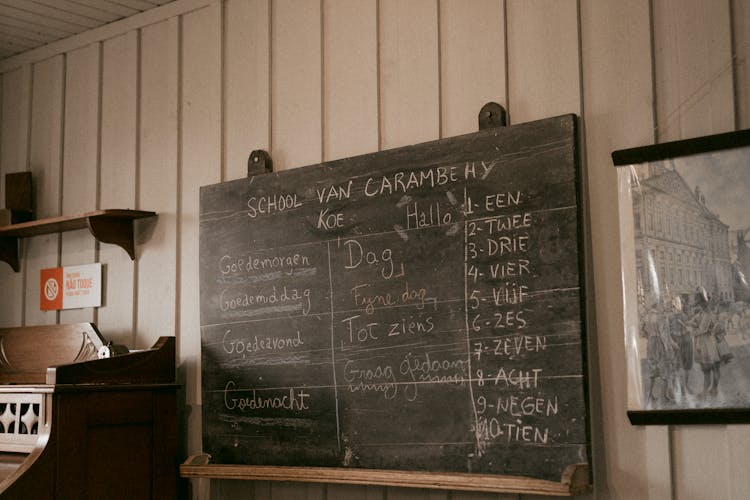 SCHOOL VAN CARAMBEHY
KOE
Hallo
Goedemorgen
Goedemiddag
Goedeavond
Goedenacht
Dag
Fijne dag
Tot ziens
Graag gedaan
1- EEN
2- TWEE
3- DRIE
4- VIER
5- VIJF
6- ZES
7- ZEVEN
8- ACHT
9- NEGEN
10- TIEN
NÃO TOQUE